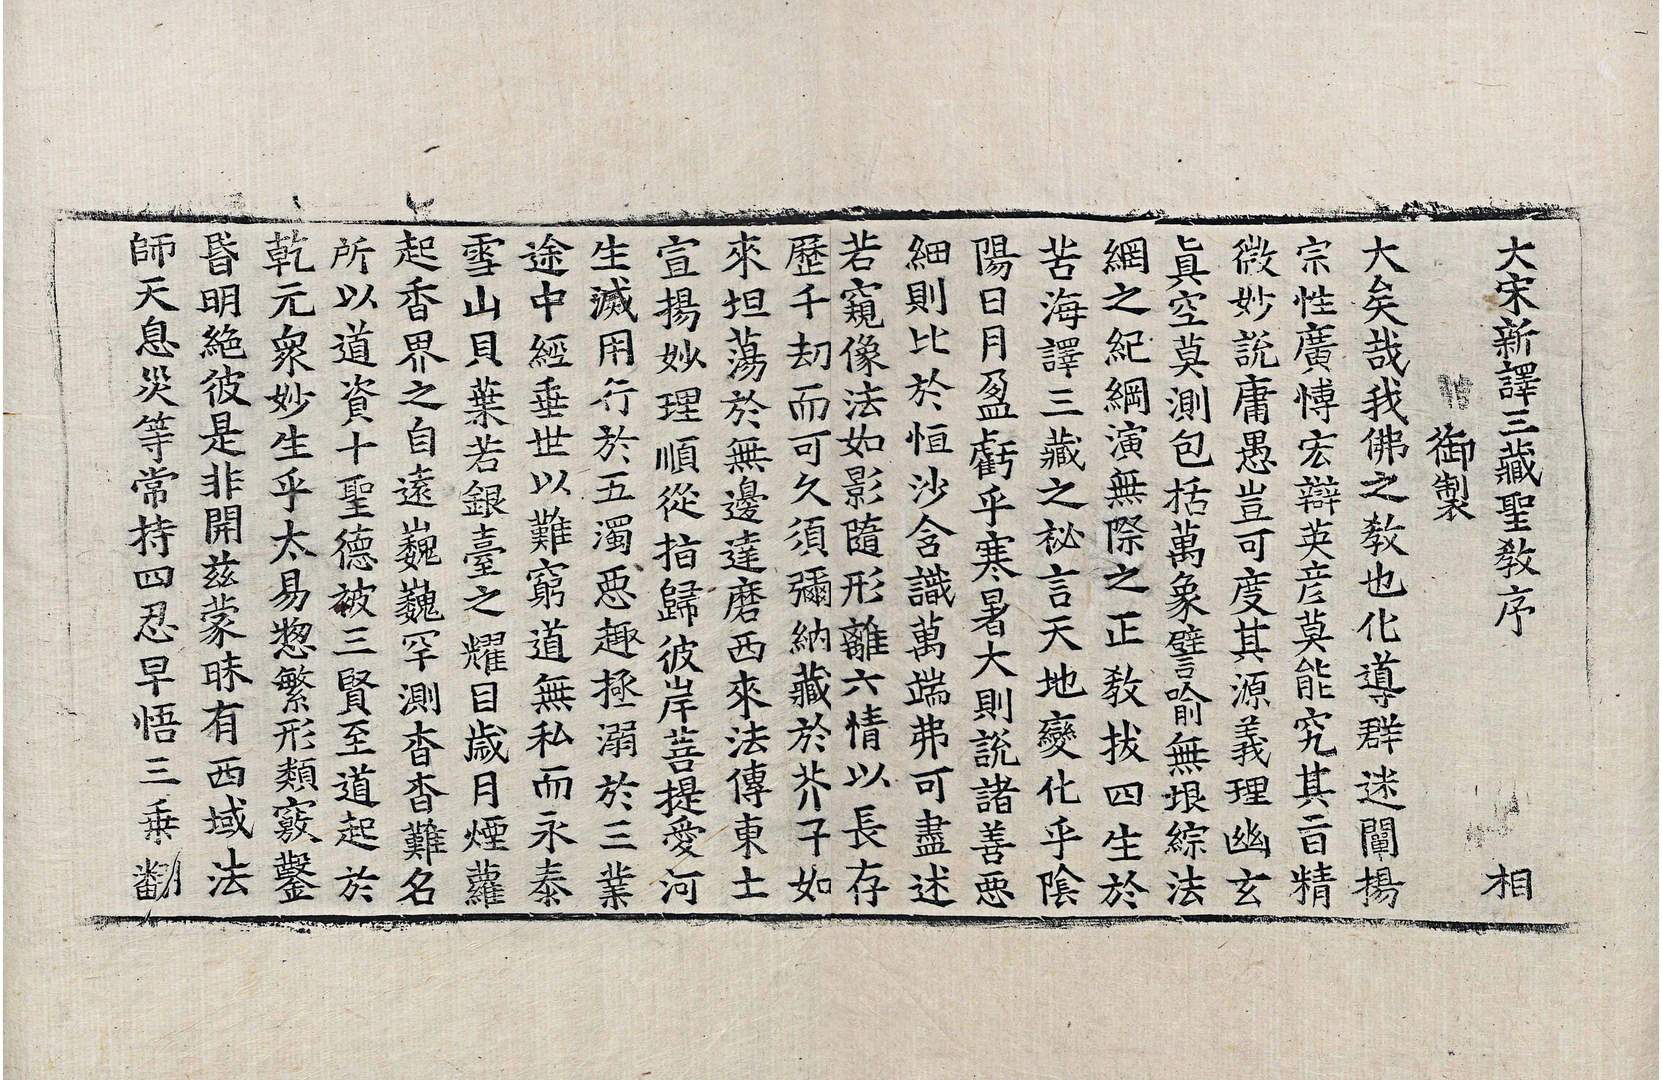 大宋新譯三藏聖教序 相
御製
大矣哉我佛之教也化導群迷闡揚
宗性廣博宏辯英彦莫能究其旨精
微妙說庸愚豈可度其源義理幽玄
眞空莫測包括萬象譬喻無垠綜法
網之紀綱演無際之正教拔四生於
苦海譯三藏之祕言天地變化乎陰
陽日月盈虧乎寒暑大則說諸善惡
細則比於恒沙含識萬端弗可盡述
若窺像法如影隨形離六情以長存
歷千刧而可久須彌納藏於芥子如
來坦蕩於無邊達磨西來法傳東土
宣揚妙理順從指歸彼岸菩提愛河
生滅用行於五濁惡趣拯溺於三業
途中經垂世以難窮道無私而永泰
雪山貝葉若銀臺之耀目歲月煙蘿
起香界之自遠巍巍罕測杳杳難名
所以道資十聖德被三賢至道起於
乾元衆妙生乎太易惣繁形類竅鑿
昬明絶彼是非開兹蒙昧有西域法
師天息災等常持四忍早悟三乗翻